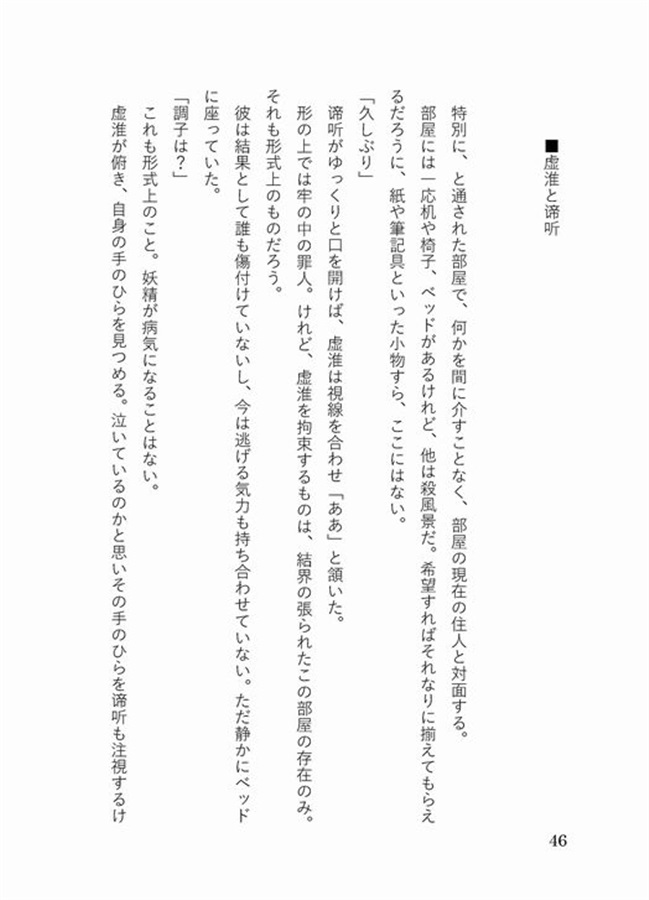 ■虚淮と谛听
特別に、と通された部屋で、何かを間に介すことなく、部屋の現在の住人と対面する。
部屋には一応机や椅子、ベッドがあるけれど、他は殺風景だ。希望すればそれなりに揃えてもらえ
るだろうに、紙や筆記具といった小物すら、ここにはない。
「久しぶり」
谛听がゆっくりと口を開けば、虚淮は視線を合わせ「ああ」と頷いた。
形の上では牢の中の罪人。けれど、虚淮を拘束するものは、結界の張られたこの部屋の存在のみ。
それも形式上のものだろう。
彼は結果として誰も傷付けていないし、今は逃げる気力も持ち合わせていない。ただ静かにベッド
に座っていた。
「調子は？」
これも形式上のこと。妖精が病気になることはない。
虚淮が俯き、自身の手のひらを見つめる。泣いているのかと思いその手のひらを谛听も注視するけ
46